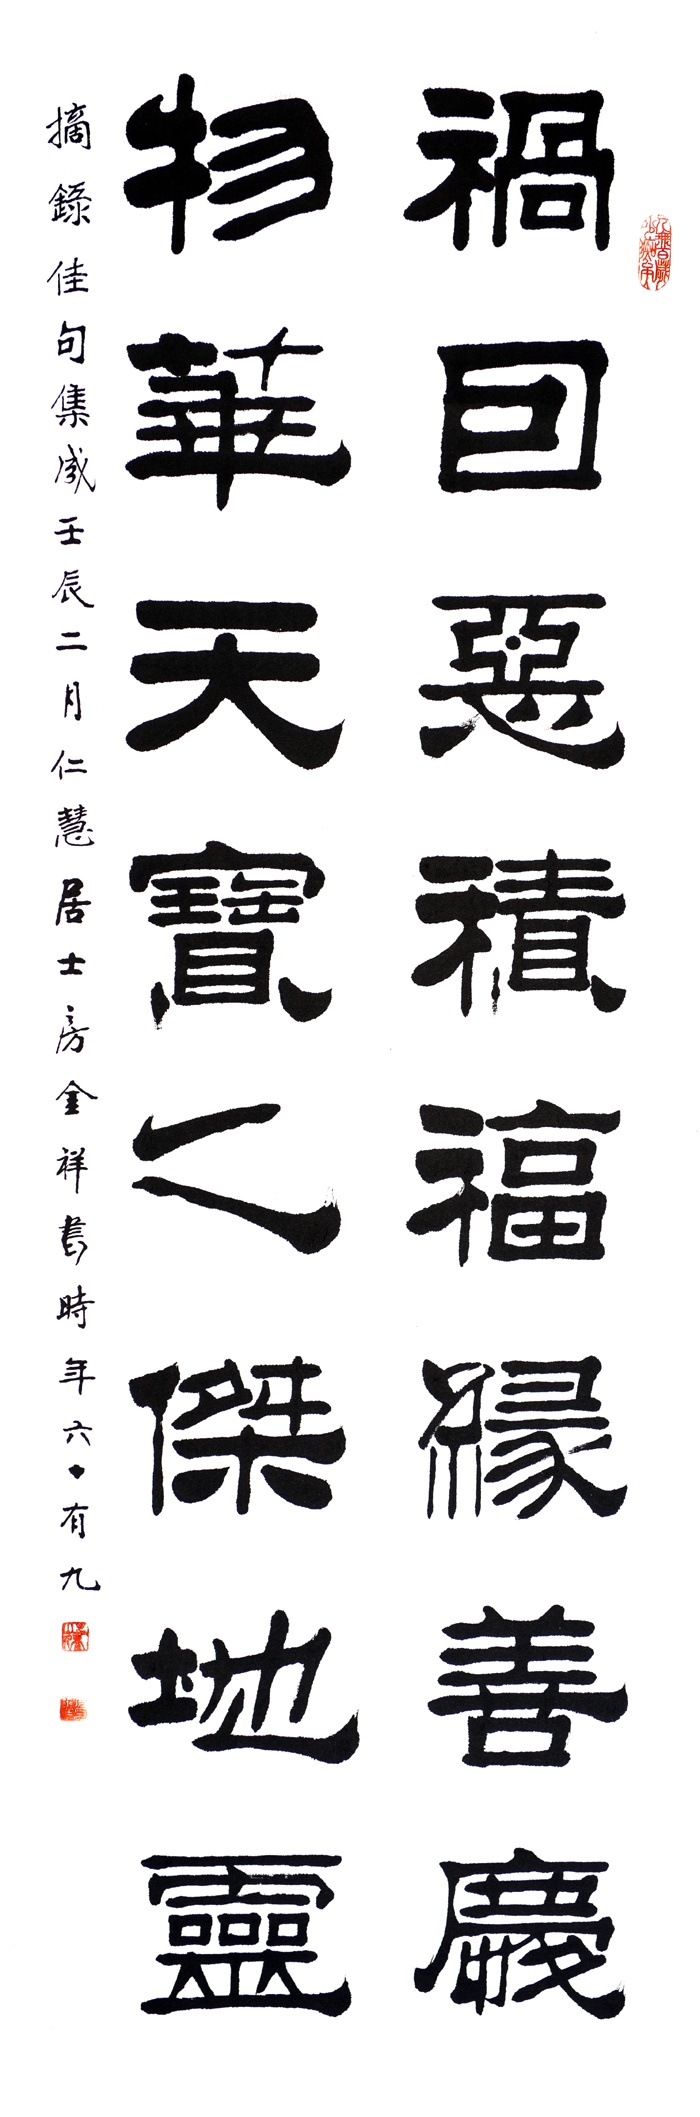 禍因惡積福緣善慶
物華天寶人傑地靈
摘錄佳句集成壬辰二月仁慧居士房金祥書時年六十有九